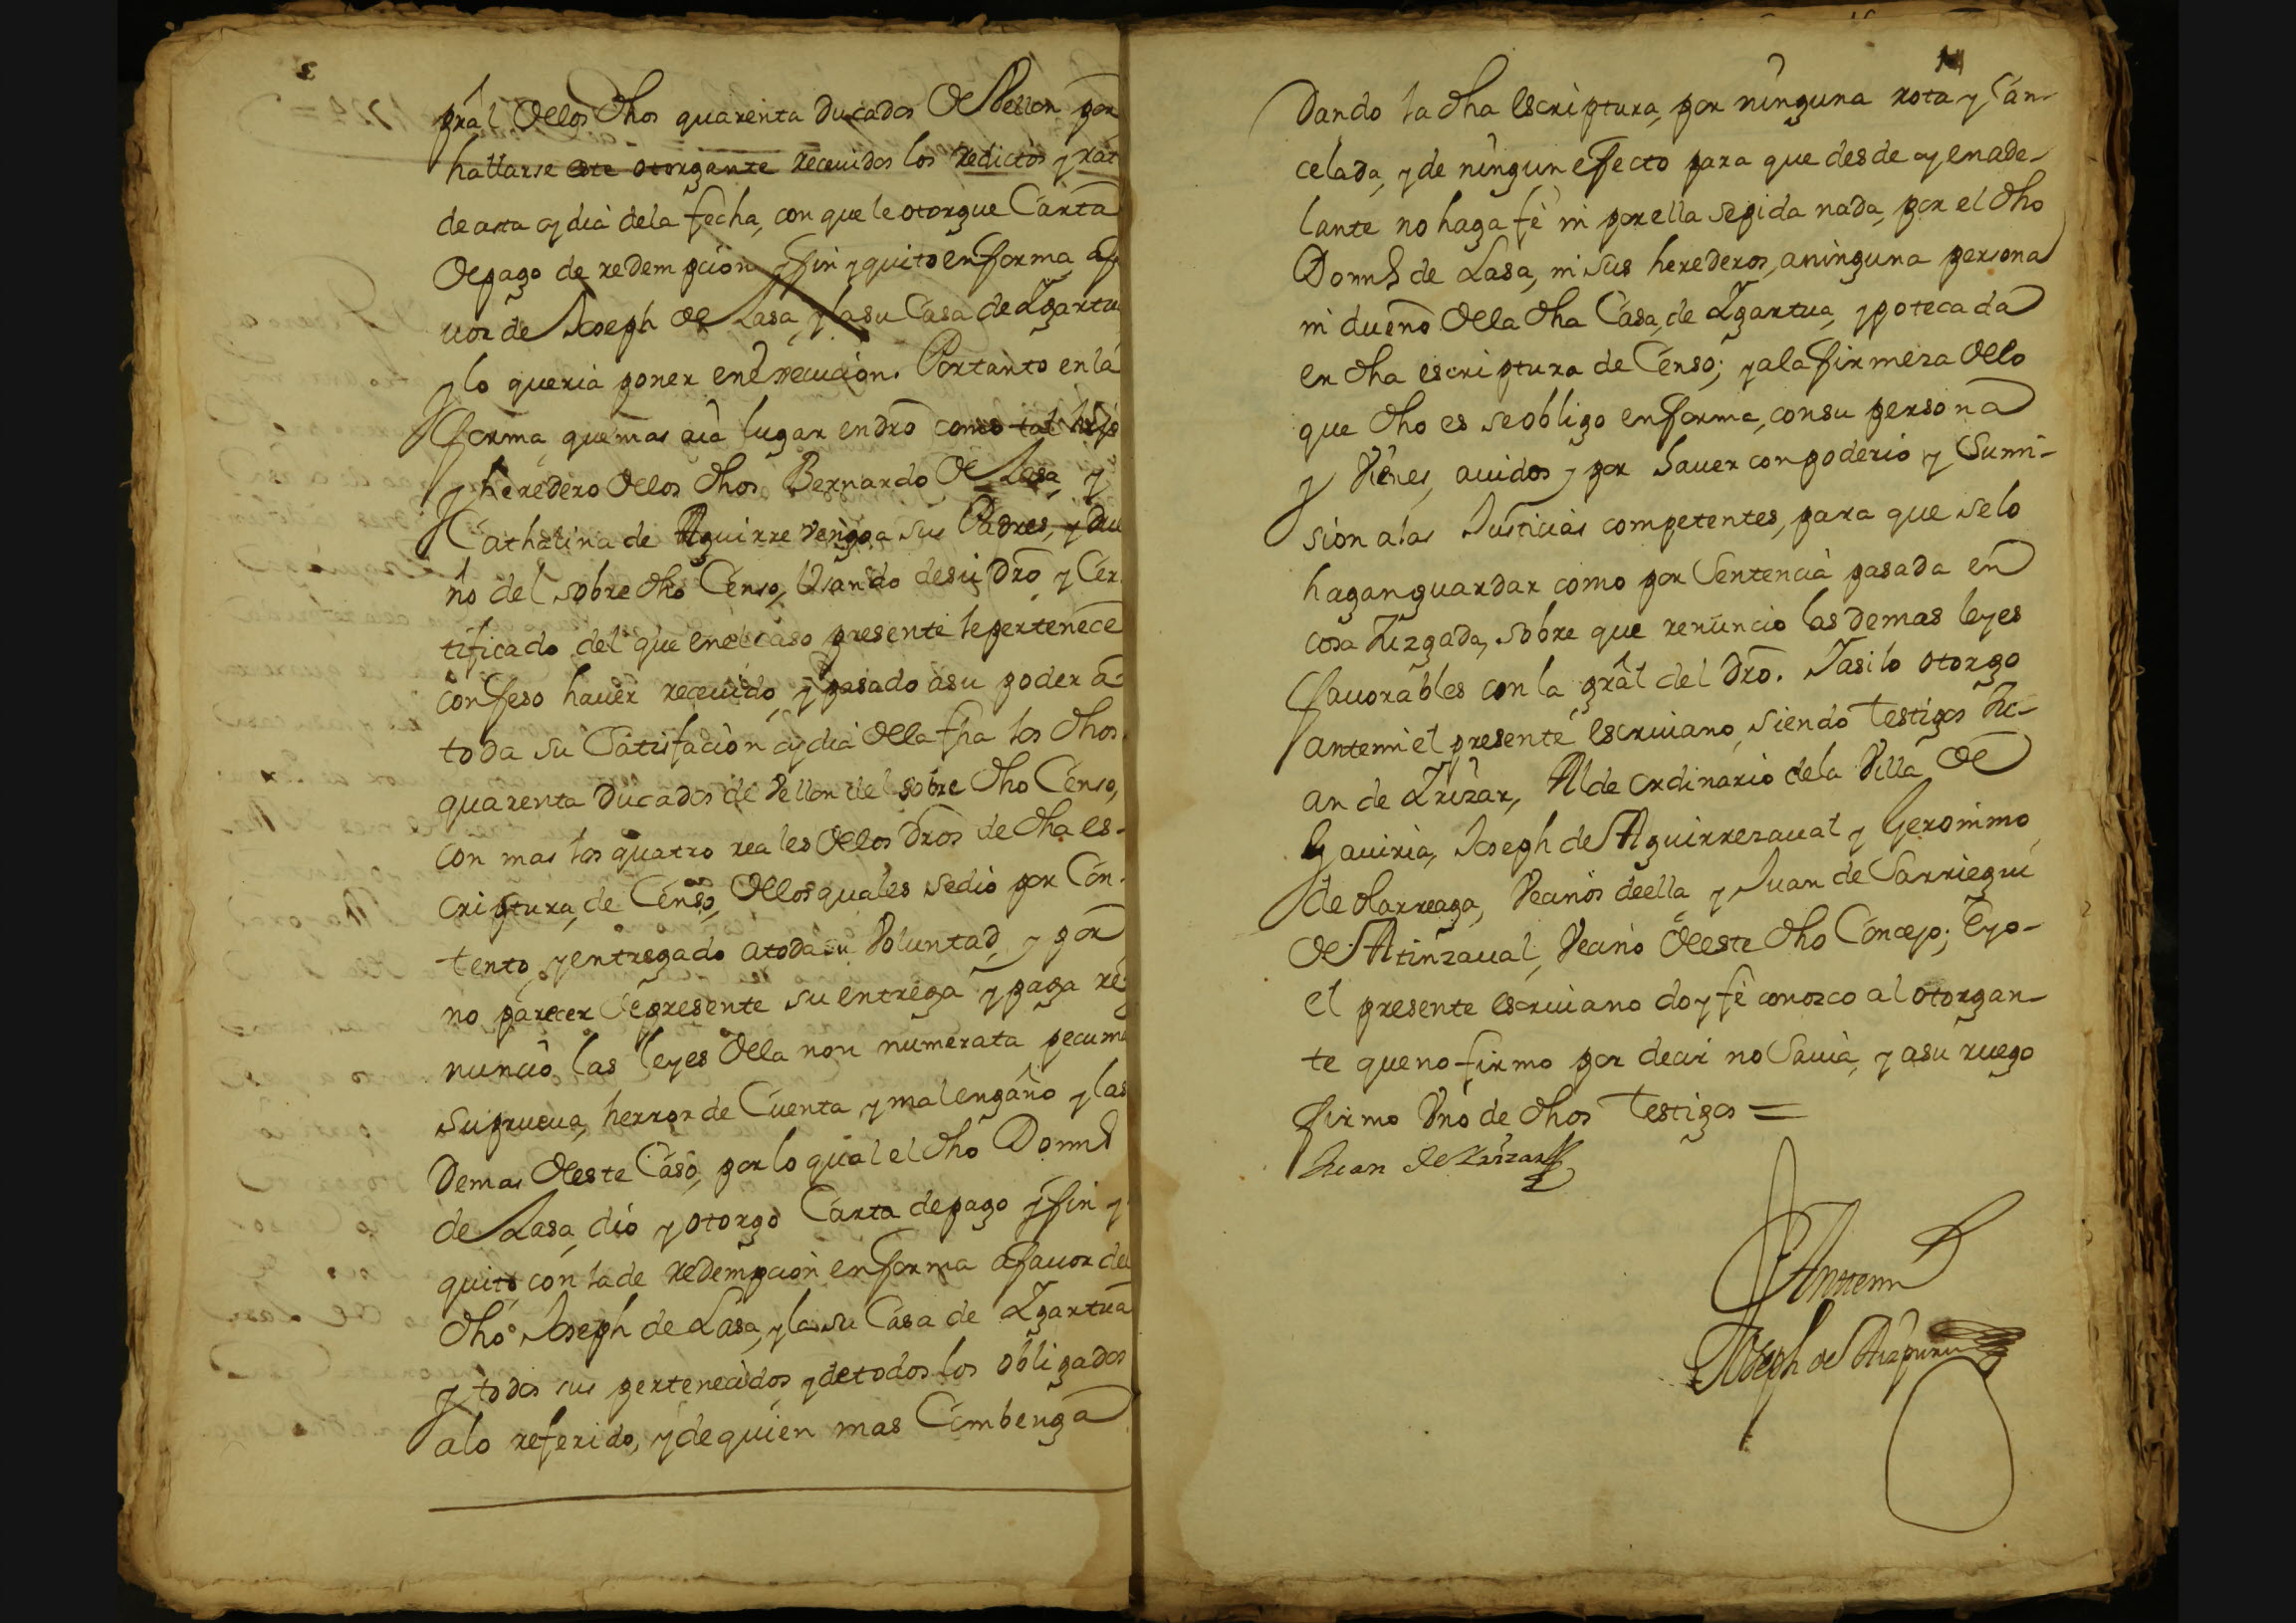 prāl Dellos Dhos quarenta Ducados De Vellon por
hallarse este otorgante receuidos los redictos y rat
de asta oy dia dela fecha, con que le otorgue Carta
De pago de redempcion y fin y quito en forma, a fa
uor de Joseph De Lasa, y la su Casa de Ygartua
y lo queria poner en execucion. Por tanto en la
forma que mas aia lugar en dro como tal hijo
y heredero Dellos Dhos Bernardo De Lasa, y
Cathalina de Aguirre vengoa sus Padres, y Due
ño del sobre dho Censo, Usando de su Dro, y Cer
tificado del que en el caso presente le pertenece
confeso hauer receuido, y pasado a su poder a
toda su Satisfacion oy dia Della fha los Dhos
quarenta Ducados de Vellon del sobre Dho Censo,
con mas los quatro reales Dellos Dros de Dha es-
criptura, de Censo, Dellos quales se dio por Con-
tento, y entregado a toda su Voluntad, y por
no parecer De presente su entrega y paga re
nuncio las leyes Della non numerata pecunia
su prueua, herror de Cuenta, y mal engaño y las
Demas Deste Caso, por lo qual el Dho Domg
de Lasa, dio y otorgo Carta de pago y fin y
quito, con la de redempcion en forma a fauor del
Dho Joseph de Lasa, y la su Casa de Ygartua
y todos sus pertenecidos y de todos los obligados
a lo referido, y de quien mas Combenga
Dando la dha escriptura, por ninguna rota y Can-
celada, y de ningun efecto para que desde oy en ade-
lante no haga fe ni por ella se pida nada, por el Dho
Domg de Lasa, ni sus herederos, a ninguna persona
ni dueño Della Dha Casa, de Ygartua, ypotecada
en Dha escriptura de Censo; y a la firmeza Dello
que Dho es se obligo en forma, con su persona
y Vienes, auidos y por hauer con poderio y Sumi-
sion a las Justicias competentes, para que se lo
hagan guardar como por Sentencia pasada en
cosa Juzgada, sobre que renuncio las demas leyes
fauorables con la grāl del Dro. Y asi lo otorgo
ante mi el presente escriuano, siendo testigos Ju-
an de Yrizar, Alde ordinario dela Villa De
Gauiria, Joseph de Aguirrezaual y Geronimo
de olarreaga, Vecinos de ella y Juan de Sarriegui
De Atinzaual, Vecino Deeste Dho Concejo; E yo-
el presente escriuano doy fe conozco al otorgan-
te que no firmo por decir no Sauia, y a su ruego
firmo Vno de Dhos Testigos =
Juan de Yrizar
Antemi
Joseph de Aizpuru